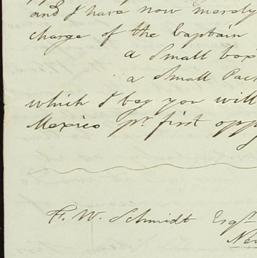 and I have now merely
charge of the Captain
a small box
a small Pack
which I beg you will
Mexico pr. first opp
F. W. Schmidt Esqr
New